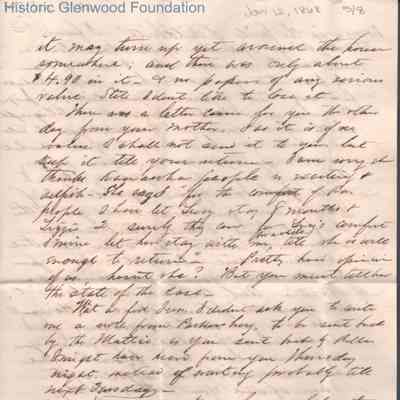 Historic Glenwood Foundation
Jan 12, 1868 5/8
it may turn up yet around the house
somewhere; and there was only about
$4.90 in it - & no papers of any serious
value. Still I dont like to lose it.
There was a letter came for you the other
day from your Mother. As it is of no
value I shall not send it to you but
keep it till your return - I am sorry she
thinks people is
selfish - She says "for the comfort of her
people I have let Lucy stay 8 months &
Lizzie 2 surely they can for Lucy's comfort
& mine let her stay with me, till she is well
enough to return" - Pretty hard opinion
of us, hasn't she? But you must tell her
the state of the case -
What a fool I am. I didnt ask you to write
me a note from to be sent back
by the Mattie. If you sent back by
I might have news from you Thursday
night instead of waiting probably till
next Tuesday -